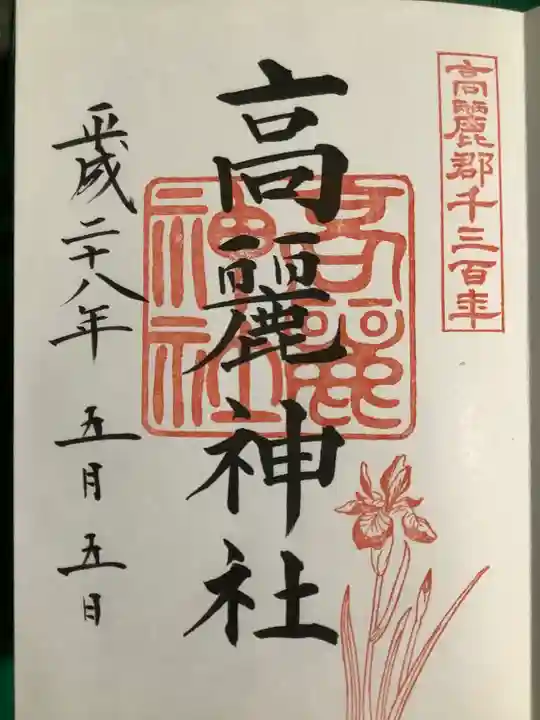 高麗郡千三百年
高麗神社
高麗神社
平成二十八年 五月五日